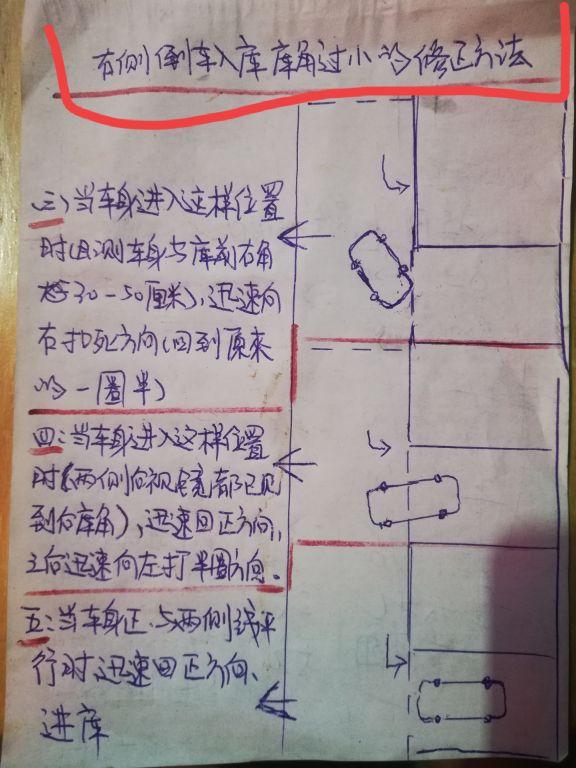 右侧倒车入库库角过小的修正方法
三)当车身进入这样位置
时(目测车身与库前右角
30-50厘米),迅速向
右打死方向(回到原来
的一圈半)
四:当车身进入这样位置
时(两侧向视镜都已见
到后库角),迅速回正方向,
之后迅速向左打半圈方向。
五:当车身正、与两侧线平
行时,迅速回正方向、
进库